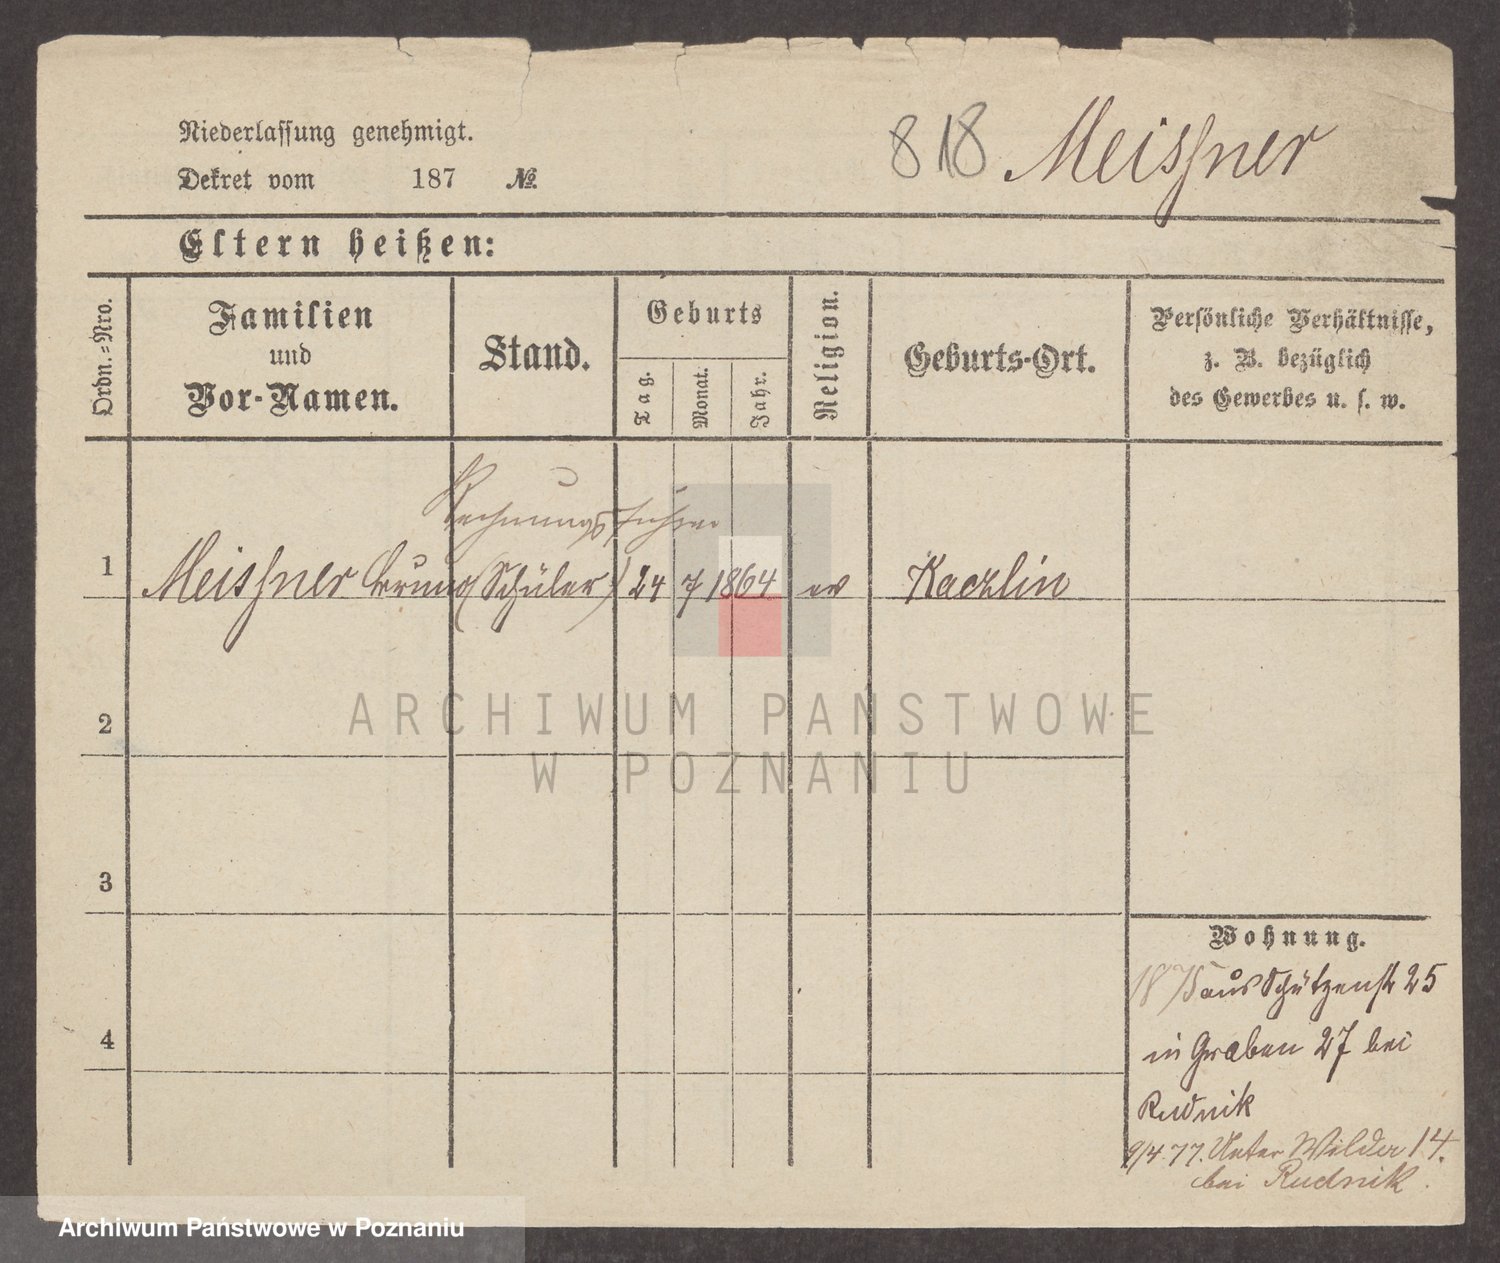 Niederlassung genehmigt.
818 Meissner
Dekret vom 187 №
Eltern heißen:
Ordn.=Nro.
Familien
und
Vor-Namen.
Stand.
Geburts
Tag.
Monat.
Jahr.
Religion.
Geburts-Ort.
Persönliche Verhältnisse,
z. B. bezüglich
des Gewerbes u. s. w.
Rechnungsführer
1 Meissner Bruno (Schüler) 24 7 1864 ev Kaezlin
2
3
4
Wohnung.
aus Schützenstr 25
in Graben 27 bei
Rudnik
9/4 77. Unter Wilda 14.
bei Rudnik.
ARCHIWUM PAŃSTWOWE
W POZNANIU
Archiwum Państwowe w Poznaniu